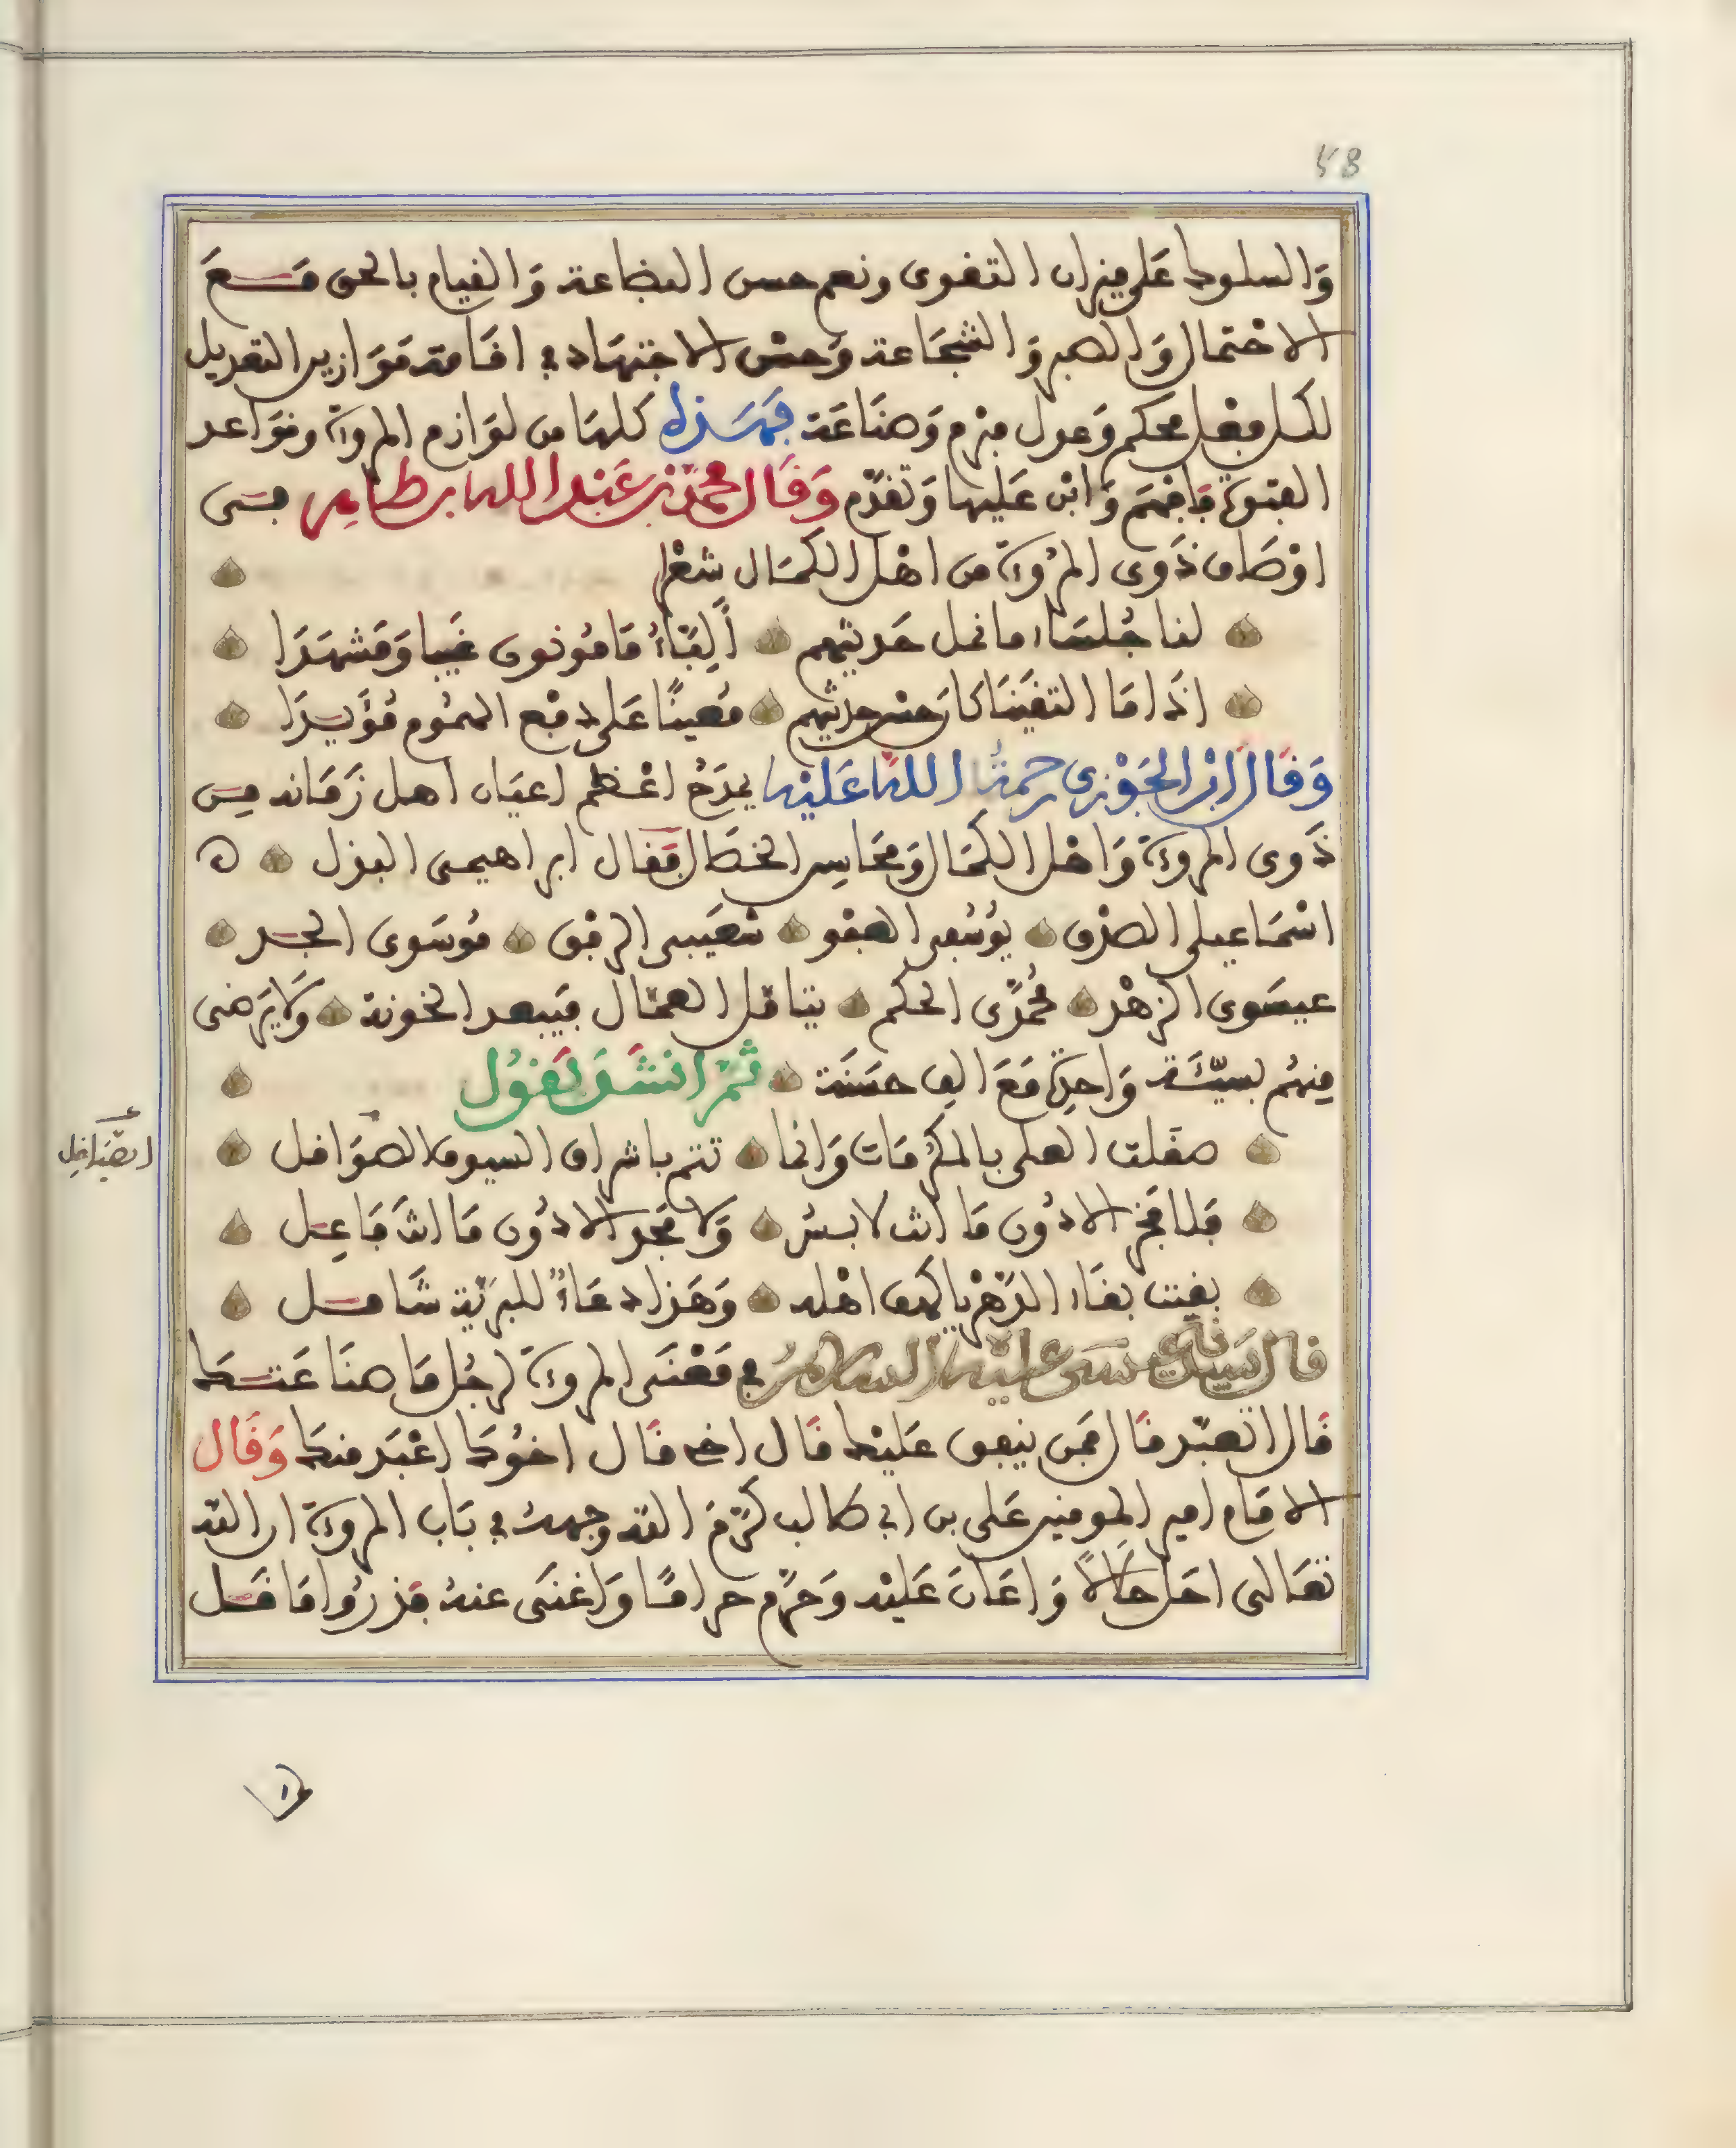 58
وَالسلوك عَلى ميزان التقوى ونعم حسن البضاعة وَالقيام بالحق مَـعَ
الاحْتمال وَالصبر وَالشجَاعة وَحسْن الاجتهَاد في اقَامة مَوَازين التعديل
لكل فعْل محكم وَعدل مبرم وَصنَاعَة فهَـذه كلهَا من لوَازم المروءة وقوَاعد
الفتوة فافهَم وَابن عَليها وَتقدّم وَقَال محمّد بن عَبْد الله بن طاهِر فى
اوْصَاف ذَوى المرُوءة من اهْل الكمَال شعْرا
لنا جُلسَاء ما نمل حَديثهم ألِبّاءُ مَامُونون غيبا وَمَشهَدَا
اذَا مَا التقَيْنَا كان حسْن حديثهم مُعينًا عَلى دفع الهمُوم مُؤيـدَا
وَقَال ابْن الجَوْزى رحمة اللهُ عَليْه يمدَحُ اعْـظم اعيَان اهل زَمَانه مـن
ذَوى المروءة وَاهْل الكمَال وَمحَاسِن الخصَال فقَال ابراهيمى البذل ه
اسْمَاعيلى الصدْق يُوسُفى العفو شعَيبى الرفْق مُوسَوى الجـد
عيسَوى الزهْد محُمّدَى الحكم يتاقل العمّال فيَبعد الخونة وَلا يَرضى
مِنهُم بسيّـئَة وَاحِدة مَعَ الف حسَنَة ثمّ انشَـدَ يَقوُل
صقلت العلى بالمكرُمَات وَانما تتم باشراق السيوف الصوَاقل
فلا فخرَ الا دُون مَا انت لابـسُ وَلا مجَد الا دُون مَا انتَ فَاعِـل
بقيت بقَاء الدّهْر يا كهف اهْله وَهَذا دعَاءٌ للبريّة شَامـل
قال سَيدنا عيسَى عليْه السلامُ في مَعْنَى المروءة لرجُل مَا صنَاعَتـك
قَال اتعبّد قَال فمَن ينفق عَليْك قَال اخى قَال اخوُك اعْبَد منك وَقَال
الامَام امير المومنين عَلى بن ابي طالب كرّمَ الله وجهه في بَاب المروءة ان الله
تعَالى احَل حَلالاً وَاعَانَ عَليْه وَحرّم حرامًا وَاغنَى عنهُ فذرُوا مَا قـل